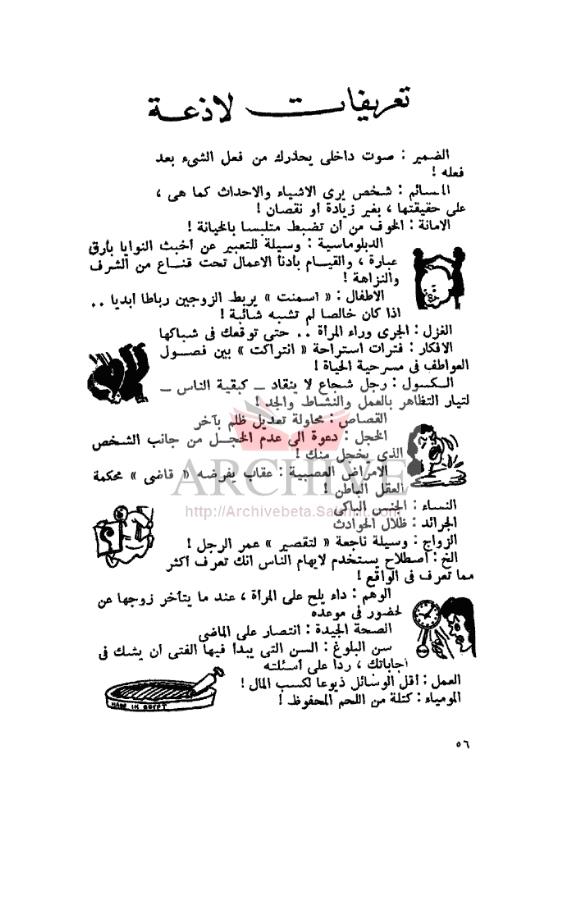 تعريفات لاذعة
الضمير : صوت داخلى يحذرك من فعل الشىء بعد
فعله !
المسائم : شخص يرى الاشياء والاحداث كما هى ،
على حقيقتها ، بغير زيادة او نقصان !
الامانة : الخوف من ان تضبط متلبسا بالخيانة !
الدبلوماسية : وسيلة للتعبير عن أخبث النوايا بأرق
عبارة ، والقيام بأدنأ الاعمال تحت قناع من الشرف
والنزاهة !
الاطفال : « اسمنت » يربط الزوجين رباطا أبديا . .
اذا كان خالصا لم تشبه شائبة !
الغزل : الجرى وراء المرأة . . حتى توقعك فى شباكها
الافكار : فترات استراحة « انتراكت » بين فصول
العواطف فى مسرحية الحياة !
الكسول : رجل شجاع لا ينقاد – كبقية الناس –
لتيار التظاهر بالعمل والنشاط والجد !
القصاص : محاولة تعديل ظلم بآخر
الخجل : دعوة الى عدم الخجل من جانب الشخص
الذى يخجل منك !
الامراض العصبية : عقاب يفرضه « قاضى » محكمة
العقل الباطن !
ARCHIVE
النساء : الجنس الباكى
http://Archivebeta.Sakhrit.com
الجرائد : ظلال الحوادث
الزواج : وسيلة ناجعة « لتقصير » عمر الرجل !
الخ : اصطلاح يستخدم لايهام الناس انك تعرف أكثر
مما تعرف فى الواقع !
الوهم : داء يلح على المرأة ، عند ما يتأخر زوجها عن
لحضور فى موعده
الصحة الجيدة : انتصار على الماضى
سن البلوغ : السن التى يبدأ فيها الفتى أن يشك فى
اجاباتك ، ردا على أسئلته
العمل : أقل الوسائل ذيوعا لكسب المال !
المومياء : كتلة من اللحم المحفوظ !
MADE IN EGYPT
٥٦